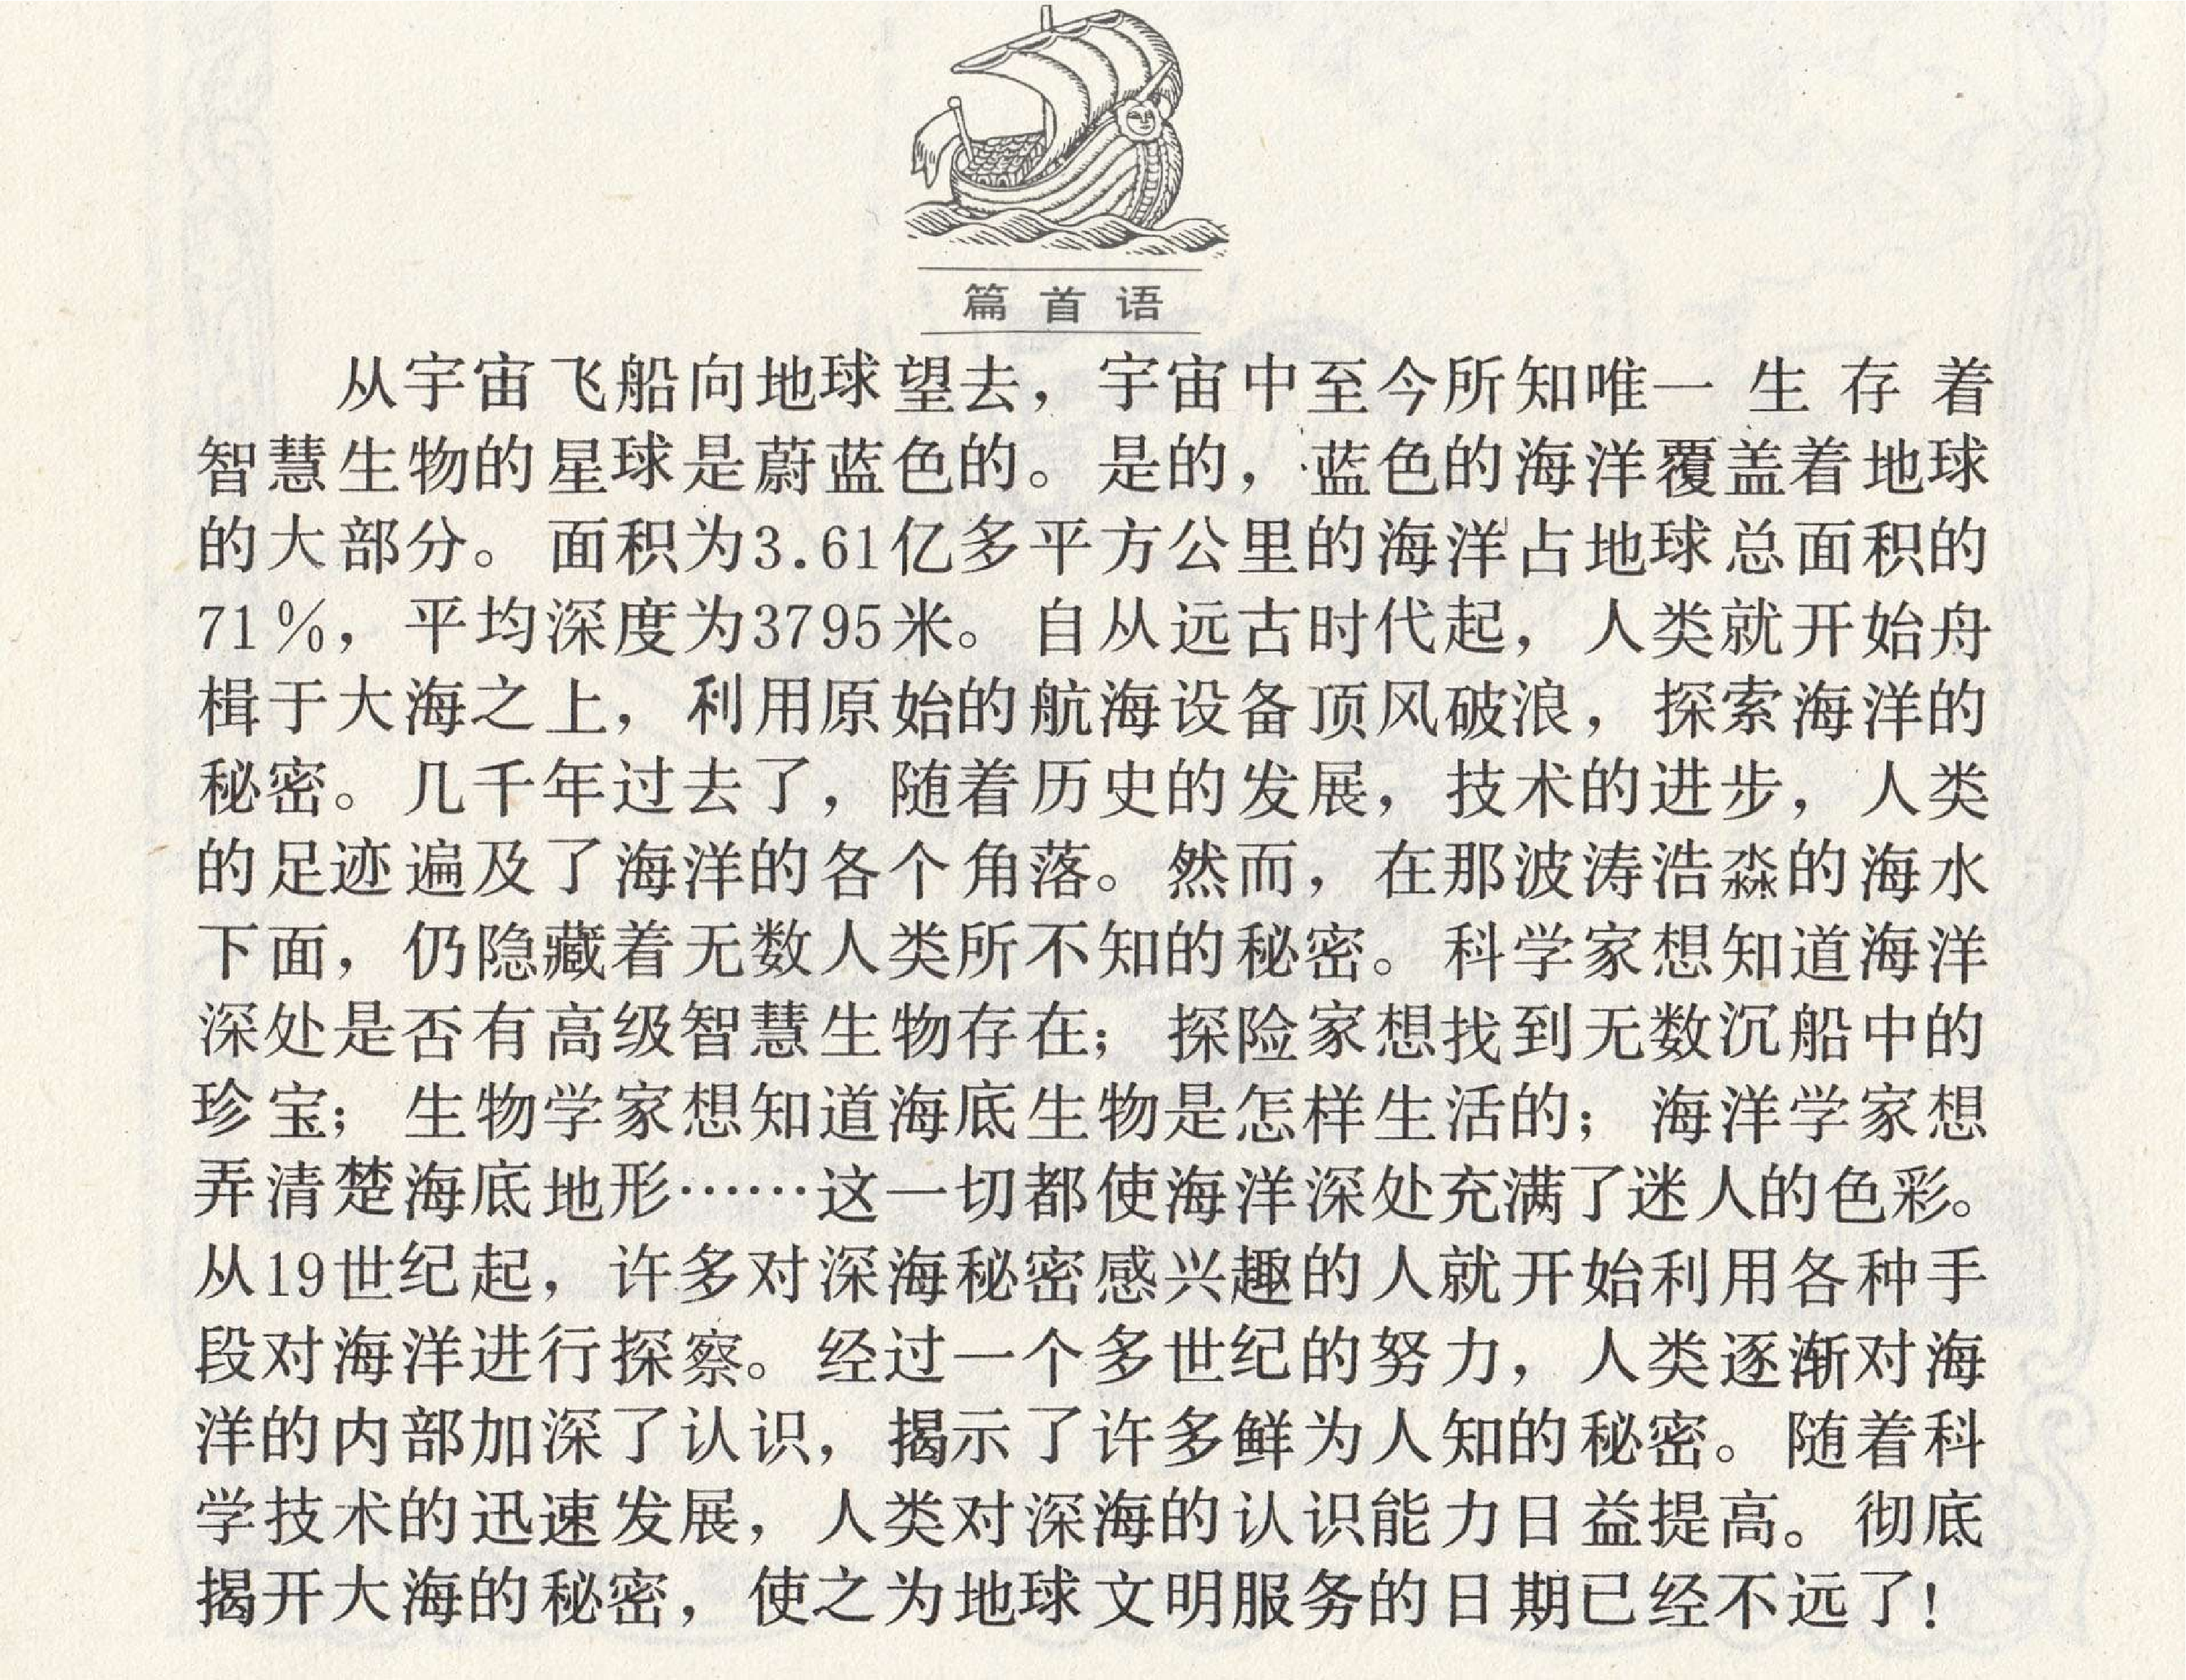 篇首语
从宇宙飞船向地球望去，宇宙中至今所知唯一生存着
智慧生物的星球是蔚蓝色的。是的，蓝色的海洋覆盖着地球
的大部分。面积为3.61亿多平方公里的海洋占地球总面积的
71％，平均深度为3795米。自从远古时代起，人类就开始舟
楫于大海之上，利用原始的航海设备顶风破浪，探索海洋的
秘密。几千年过去了，随着历史的发展，技术的进步，人类
的足迹遍及了海洋的各个角落。然而，在那波涛浩淼的海水
下面，仍隐藏着无数人类所不知的秘密。科学家想知道海洋
深处是否有高级智慧生物存在；探险家想找到无数沉船中的
珍宝；生物学家想知道海底生物是怎样生活的；海洋学家想
弄清楚海底地形……这一切都使海洋深处充满了迷人的色彩。
从19世纪起，许多对深海秘密感兴趣的人就开始利用各种手
段对海洋进行探察。经过一个多世纪的努力，人类逐渐对海
洋的内部加深了认识，揭示了许多鲜为人知的秘密。随着科
学技术的迅速发展，人类对深海的认识能力日益提高。彻底
揭开大海的秘密，使之为地球文明服务的日期已经不远了！